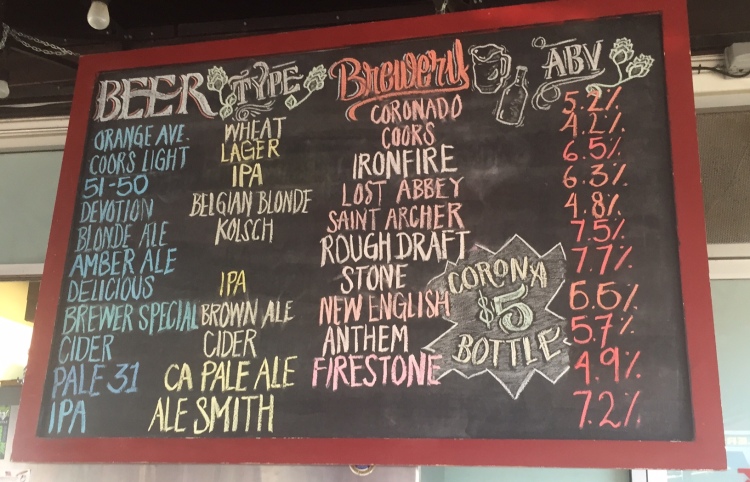 BEER TYPE Brewery ABV
ORANGE AVE. WHEAT CORONADO 5.2%
COORS LIGHT LAGER COORS 4.2%
51-50 IPA IRONFIRE 6.5%
DEVOTION BELGIAN BLONDE LOST ABBEY 6.3%
BLONDE ALE KOLSCH SAINT ARCHER 4.8%
AMBER ALE ROUGH DRAFT 7.5%
DELICIOUS IPA STONE 7.7%
BREWER SPECIAL BROWN ALE NEW ENGLISH 5.5%
CIDER CIDER ANTHEM 5.7%
PALE 31 CA PALE ALE FIRESTONE 4.9%
IPA ALE SMITH 7.2%
CORONA
$5
BOTTLE